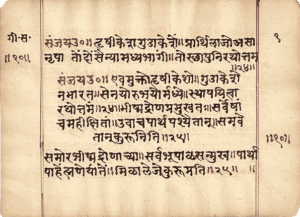 गी.स.
॥१०॥
संजयउ०॥हृषीकेशगुडाकेशी॥प्रार्थिलाजोअसा
नृपा तोदोंसैन्यामध्यभागी॥तोस्थापुनिरथोत्तम
॥२४॥
संजयउ०॥एवमुक्तोहृषीकेशो॥गुडाकेशे
नभारत॥सेनयोरुभयोर्मध्ये॥स्थापयित्वा
रथोत्तमं॥२४॥भीष्मद्रोणप्रमुखतः॥सर्वेषां
चमहीक्षितां॥उवाचपार्थपश्यैतान्॥समवे
तान्कुरूनिति॥२५॥
समोरभीष्मद्रोणाच्या॥सर्वभूपाळसन्मुख॥पार्था
पाहेंम्हणेयांतें॥मिळालेजेकुरूप्रति॥२५॥
॥१०॥